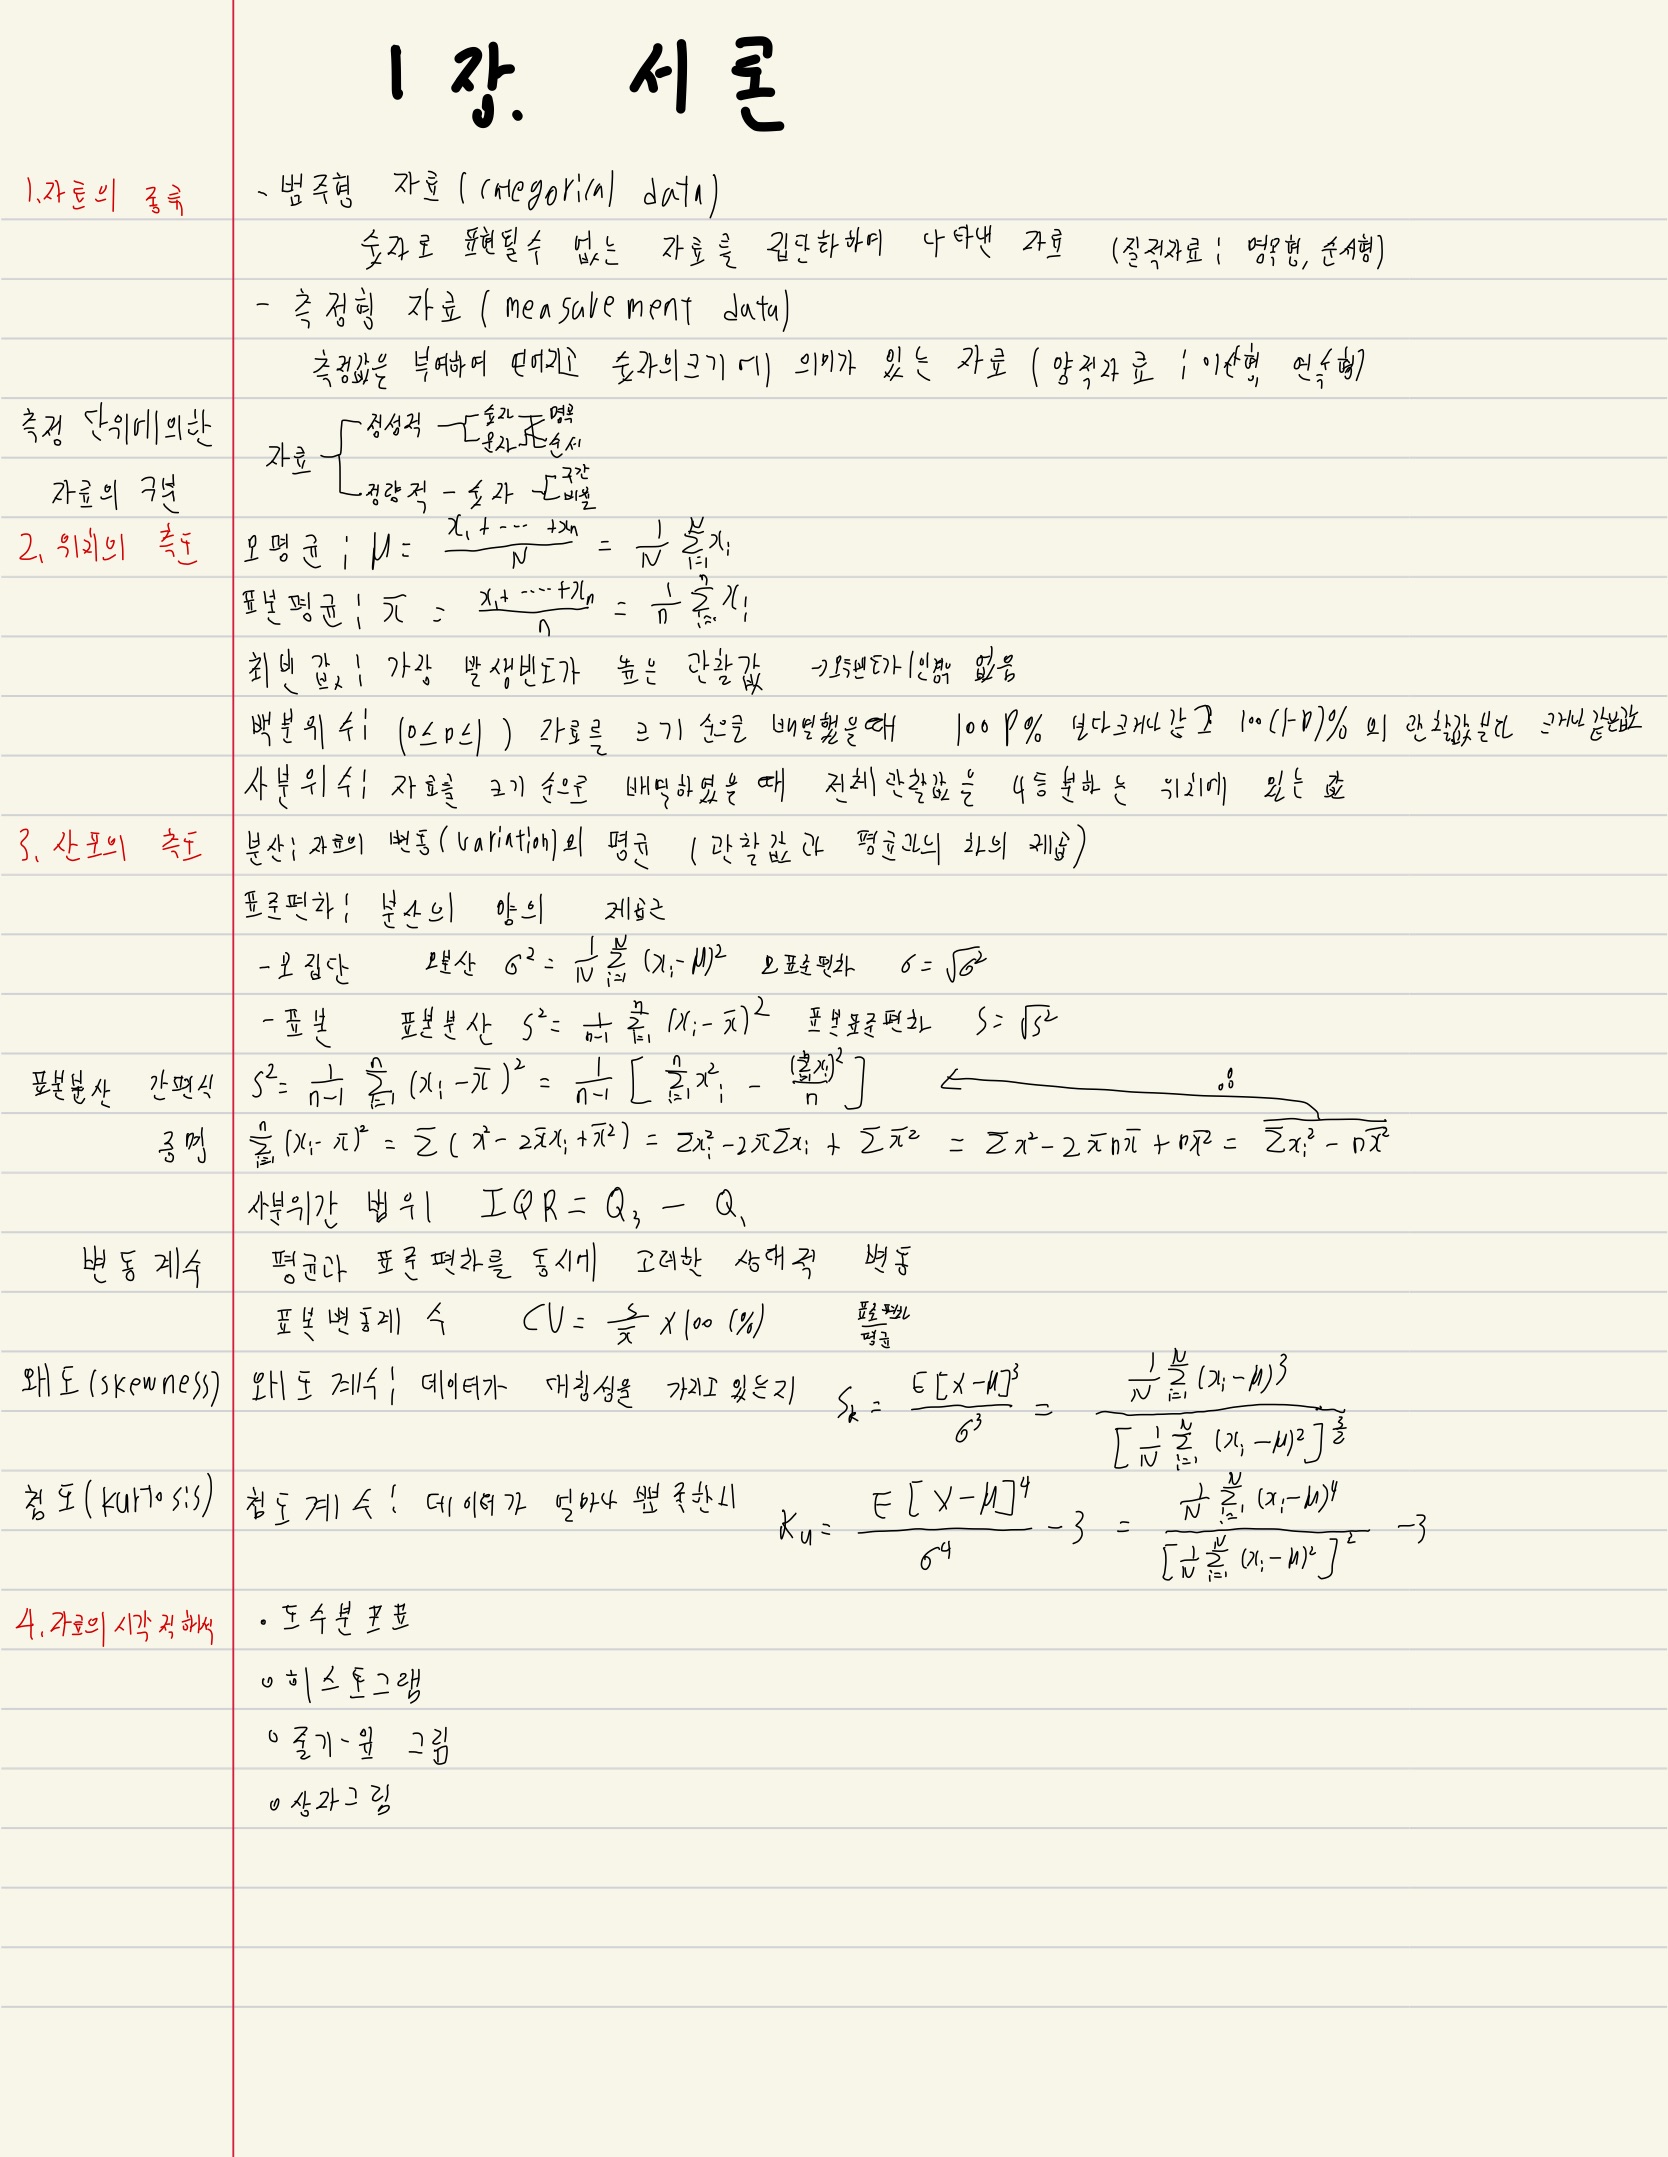 1장. 서론
1. 자료의 종류
- 범주형 자료 (categorical data)
숫자로 표현될수 없는 자료를 집단화하여 나타낸 자료 (질적자료 ; 명목형, 순서형)
- 측정형 자료 (measurement data)
측정값을 부여하여 얻어지고 숫자의크기에 의미가 있는 자료 (양적자료 ; 이산형, 연속형)
측정 단위에의한
자료의 구분
자료
정성적 숫자 명목
문자 순서
정량적 - 숫자 구간
비율
2. 위치의 측도
모평균 ; μ = (x₁ + ⋯ + xₙ)/N = 1/N Σᵢ₌₁ᴺ xᵢ
표본평균 ; x̄ = (x₁ + ⋯ + xₙ)/n = 1/n Σᵢ₌₁ⁿ xᵢ
최빈값 ; 가장 발생빈도가 높은 관찰값 → 모두빈도가 1인경우 없음
백분위수 ; (0≤p≤1) 자료를 크기 순으로 배열했을때 100p% 보다크거나같고 100(1-p)%의 관찰값보다 크거나 같은값
사분위수 ; 자료를 크기 순으로 배열하였을 때 전체관찰값을 4등분하는 위치에 있는 값
3. 산포의 측도
분산 ; 자료의 변동(variation)의 평균 (관찰값과 평균과의 차의 제곱)
표준편차 ; 분산의 양의 제곱근
- 모집단 모분산 σ² = 1/N Σᵢ₌₁ᴺ (xᵢ-μ)² 모표준편차 σ = √σ²
- 표본 표본분산 S² = 1/(n-1) Σᵢ₌₁ⁿ (xᵢ-x̄)² 표본표준편차 S = √S²
표본분산 간편식 S² = 1/(n-1) Σᵢ₌₁ⁿ (xᵢ-x̄)² = 1/(n-1) [Σᵢ₌₁ⁿ x²ᵢ - (Σᵢ₌₁ⁿ xᵢ)²/n] ← ∴
증명 Σᵢ₌₁ⁿ (xᵢ-x̄)² = Σ(x²-2x̄xᵢ+x̄²) = Σxᵢ²-2x̄Σxᵢ + Σx̄² = Σx²-2x̄nx̄+nx̄² = Σxᵢ²-nx̄²
사분위간 범위 IQR = Q₃ - Q₁
변동계수 평균과 표준편차를 동시에 고려한 상대적 변동
표본변동계수 CV = s/x̄ × 100 (%) 표준편차/평균
왜도(skewness) 왜도 계수 ; 데이터가 대칭성을 가지고 있는지 Sₖ = E[X-μ]³/σ³ = 1/N Σᵢ₌₁ᴺ (xᵢ-μ)³ / [1/N Σᵢ₌₁ᴺ (xᵢ-μ)²]^(3/2)
첨도(kurtosis) 첨도계수 ; 데이터가 얼마나 뾰족한지 Kᵤ = E[X-μ]⁴/σ⁴ - 3 = 1/N Σᵢ₌₁ᴺ (xᵢ-μ)⁴ / [1/N Σᵢ₌₁ᴺ (xᵢ-μ)²]² - 3
4. 자료의 시각적해석
• 도수분포표
• 히스토그램
• 줄기-잎 그림
• 상자그림